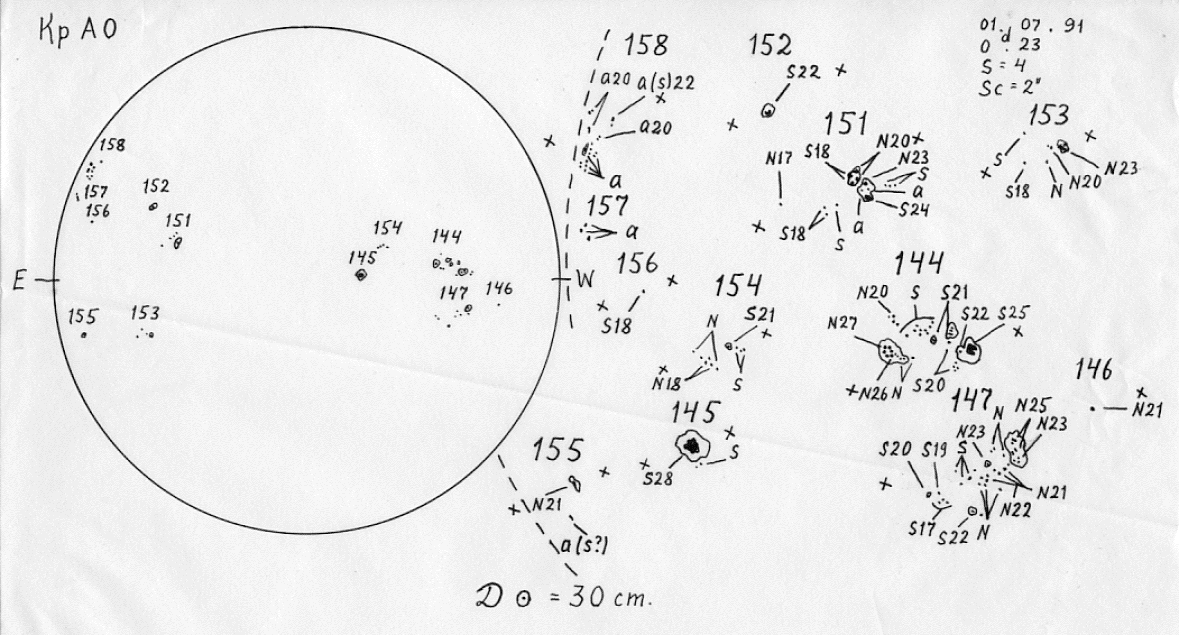 Kp A O
01. 07. 91
0 d. 23
S = 4
Sc = 2"
E
W
158
157
156
152
151
155
153
154
145
144
147
146
158
a20 a(s)22
a20
a
157
a
156
S18
152
S22
151
N17 S18 N20
N23
S
a
S24
a
S18
S
153
S
S18 N N20 N23
154
N S21
N18 S
145
S28 S
144
N20 S S21
N27 S22 S25
N26 N S20
146
N21
147
N N25
N23
S20 S19 S N23
N21
N22
S17 S22 N
155
N21
a(s?)
D ⊙ = 30 cm.